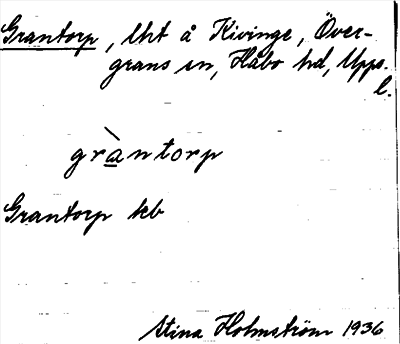 Grantorp, lht å Kivinge, Över-
grans sn, Håbo hd, Upps.
l.
gràntorp
Grantorp kb
Stina Holmström 1936